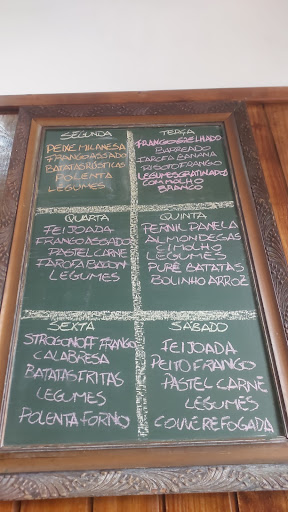 SEGUNDA
PEIXE MILANESA
FRANGO ASSADO
BATATAS RÚSTICAS
POLENTA
LEGUMES
TERÇA
FRANGO GRELHADO
BARREADO
FAROFA BANANA
RISOTO FRANGO
LEGUMES GRATINADOS
COM MOLHO
BRANCO
QUARTA
FEIJOADA
FRANGO ASSADO
PASTEL CARNE
FAROFA BACON
LEGUMES
QUINTA
PERNIL PANELA
ALMONDEGAS
C/ MOLHO
LEGUMES
PURÊ BATATAS
BOLINHO ARROZ
SEXTA
STROGONOFF FRANGO
CALABRESA
BATATAS FRITAS
LEGUMES
POLENTA FORNO
SÁBADO
FEIJOADA
PEITO FRANGO
PASTEL CARNE
LEGUMES
COUVE REFOGADA